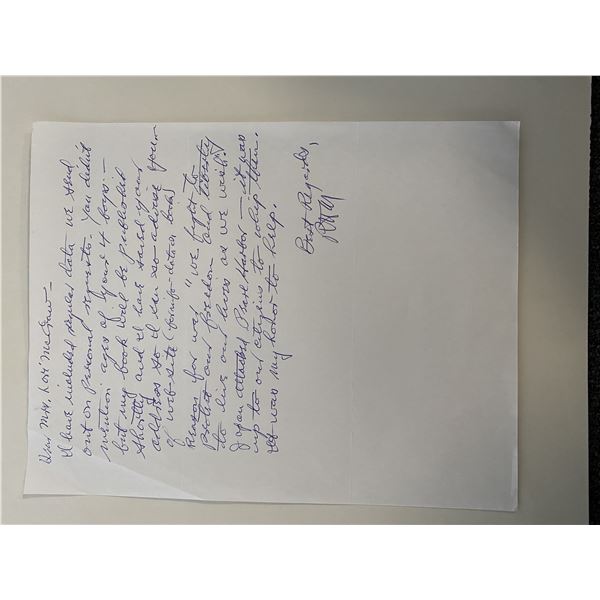 Dear Mrs. Lori McGraw -
I have included papers data we send
out on personal requests. You didn't
mention ages of your 4 boys -
but my book will be published
shortly and I have saved your
address so I can so advise you
of web-site (for info-details book)
Reason for war "we fight to
protect our freedom and liberty
to live our lives as we wish".
Japan attacked Pearl Harbor - it was
up to our citizens to whip them.
It was my honor to help.
Best Regards,